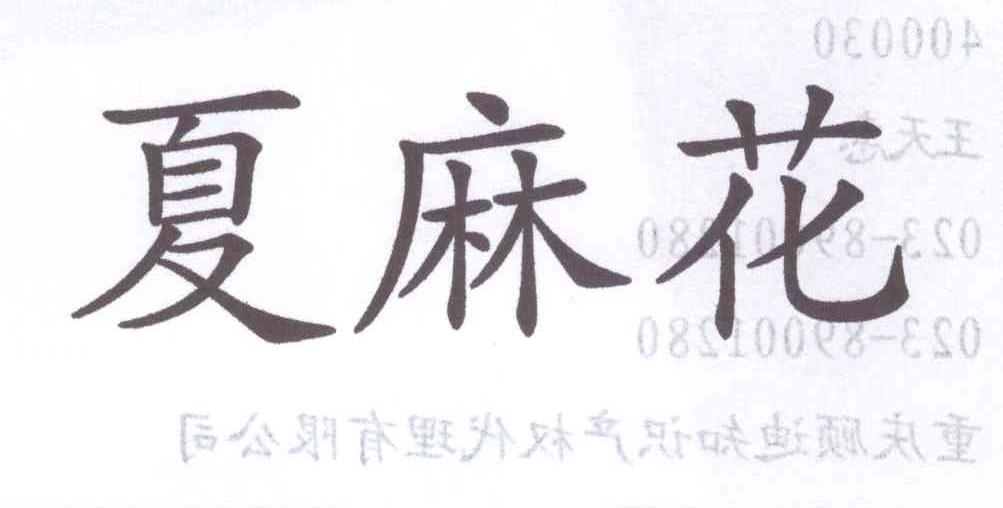 400030
王天志
夏麻花
023-89001280
023-89001280
重庆顾迪知识产权代理有限公司